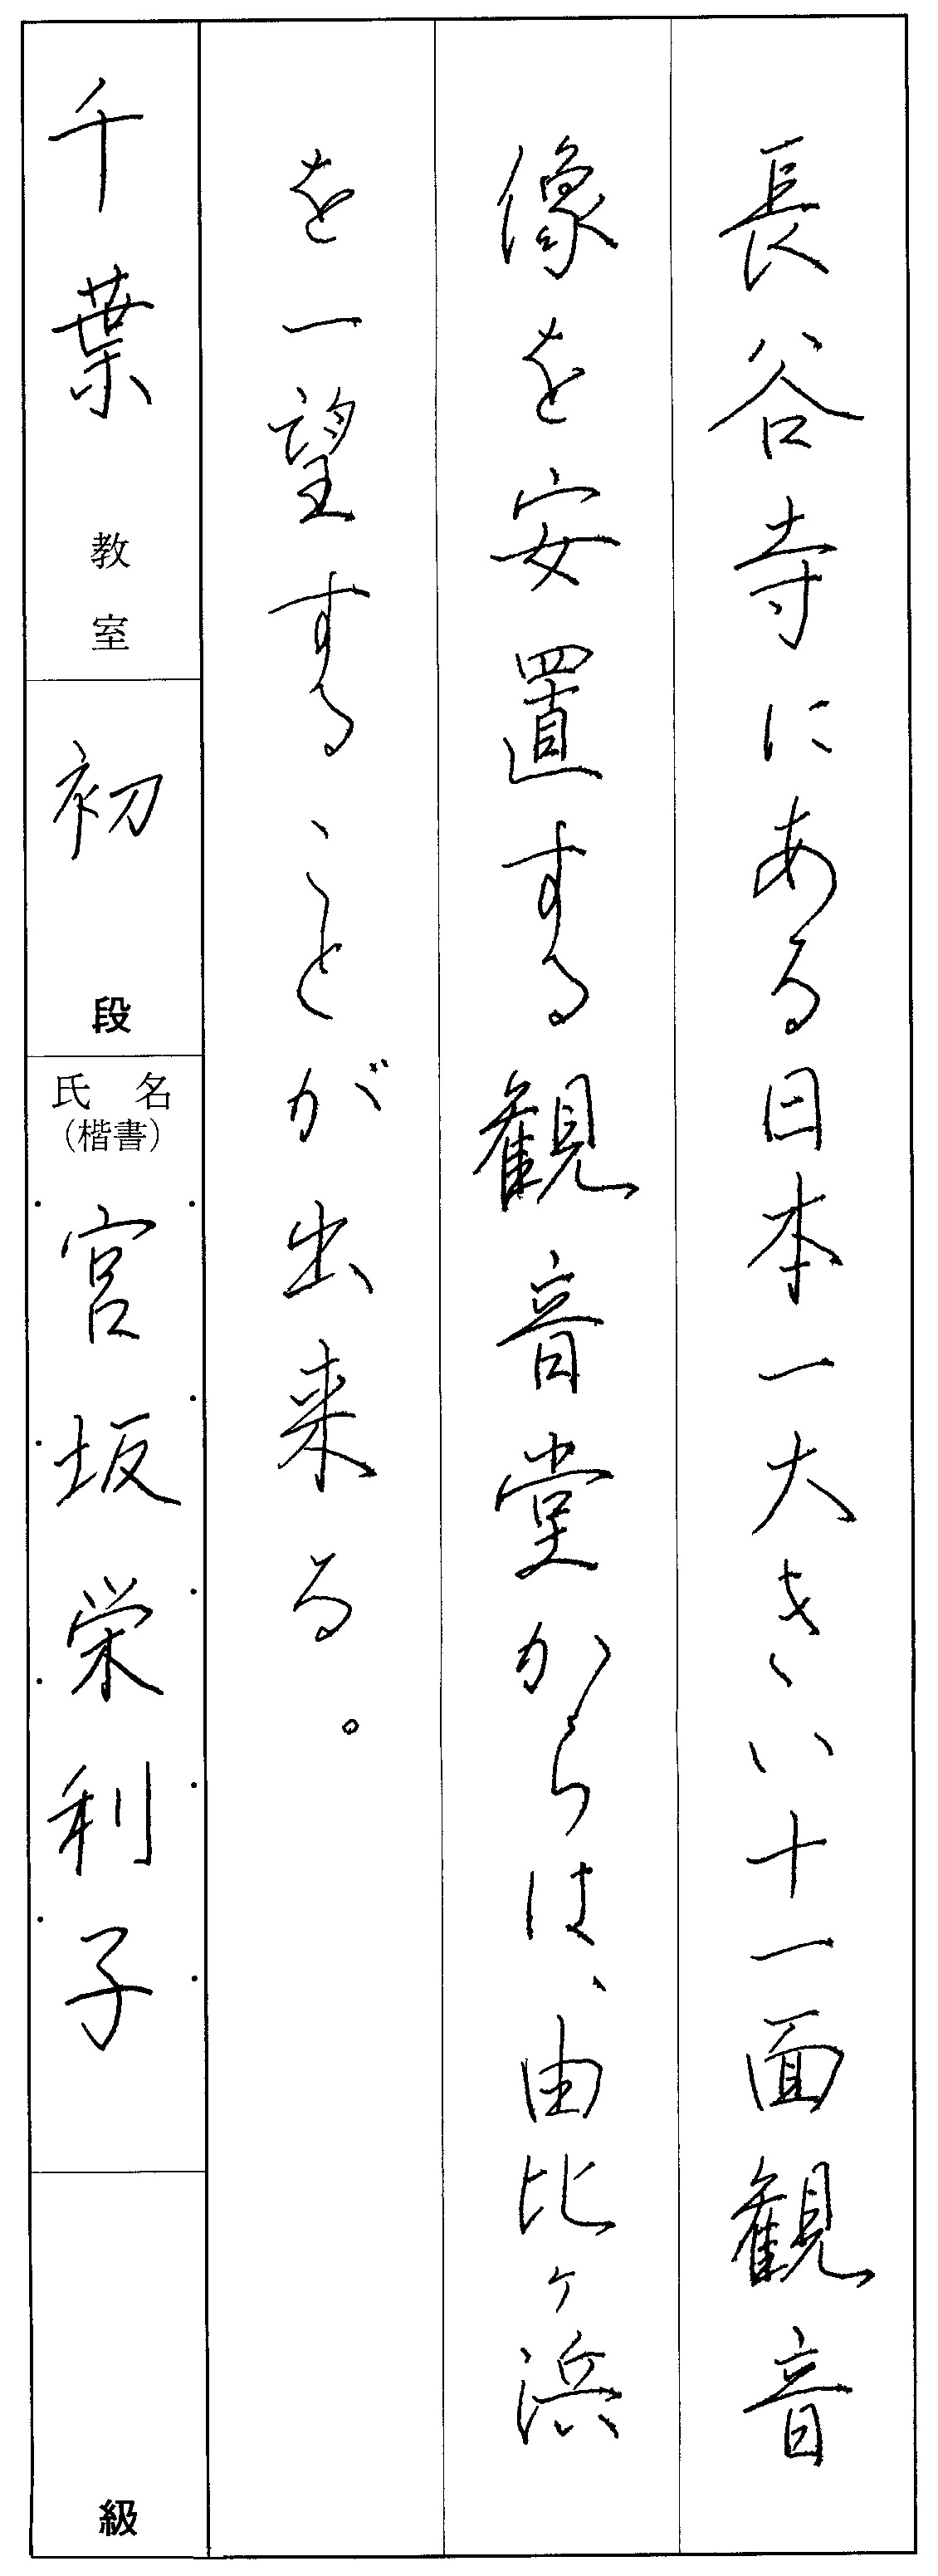 長谷寺にある日本一大きい十一面観音
像を安置する観音堂からは、由比ヶ浜
を一望することが出来る。
千葉 教室
初 段
氏名
(楷書)
宮坂栄利子
級